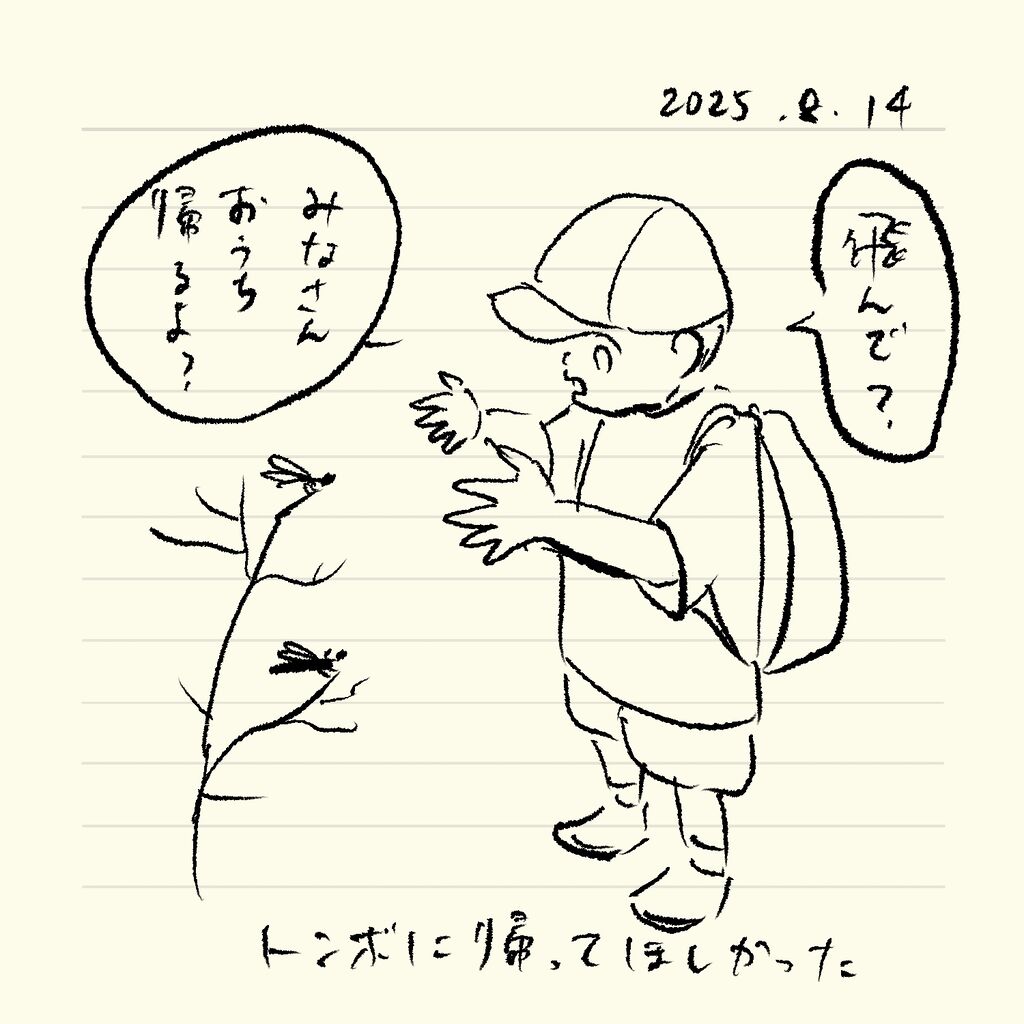 2025.8.14
飛んで?
みなさん
おうち
帰るよ?
トンボに帰ってほしかった